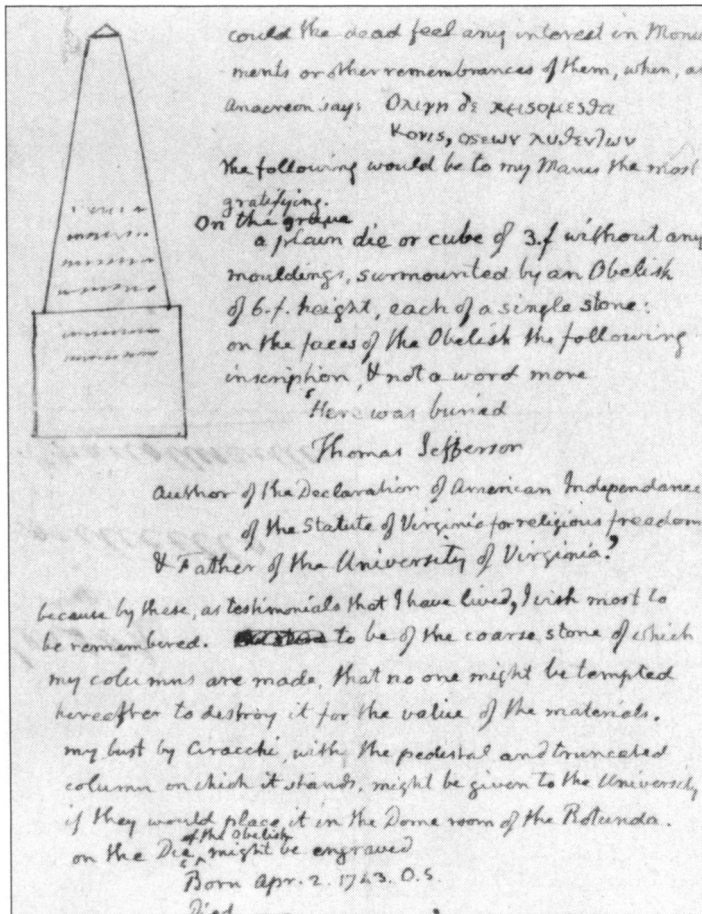 could the dead feel any interest in Monu
ments or other remembrances of them, when, as
Anacreon says: Ολιγη δε κεισομεσθα
Κονις, οσεων λυθεντων
the following would be to my Manes the most
gratifying.
On the grave
a plain die or cube of 3.f without any
mouldings, surmounted by an Obelisk
of 6.f. height, each of a single stone:
on the faces of the Obelisk the following
inscription, & not a word more
"Here was buried
Thomas Jefferson
Author of the Declaration of American Independance
of the Statute of Virginia for religious freedom
& Father of the University of Virginia."
because by these, as testimonials that I have lived, I wish most to
be remembered. to be of the coarse stone of which
my columns are made, that no one might be tempted
hereafter to destroy it for the value of the materials.
my bust by Ciracchi, with the pedestal and truncated
column on which it stands, might be given to the University
if they would place it in the Dome room of the Rotunda.
on the Die of the Obelisk might be engraved
Born Apr. 2. 1743. O.S.
Died